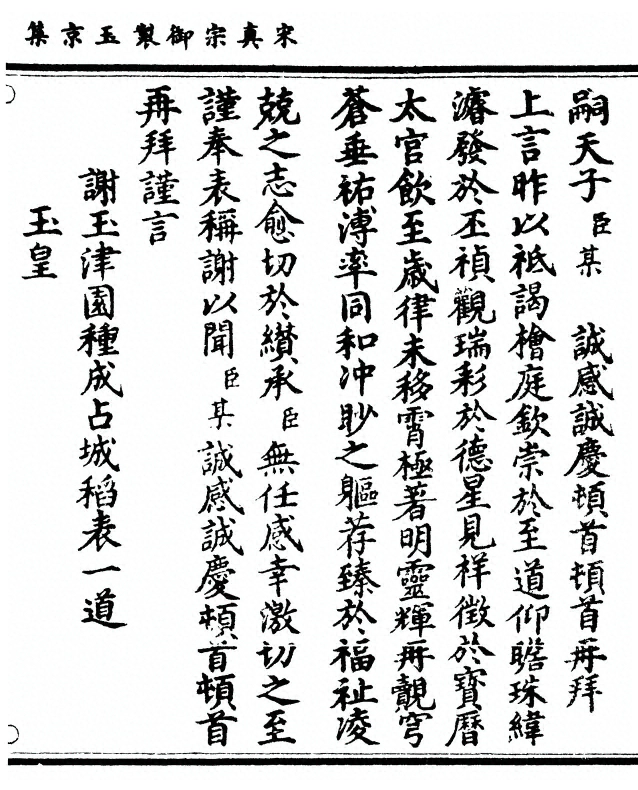 宋真宗御製玉京集
嗣天子臣某 誠感誠慶頓首頓首再拜
上言昨以祗謁檜庭欽崇於至道仰瞻珠緯
濬發於丕禎觀瑞彩於德星見祥徵於寶曆
太官飲至歲律未移霄極著明靈輝再覿穹
蒼垂祐溥率同和冲眇之軀荐臻於福祉淩
兢之志愈切於纘承臣無任感幸激切之至
謹奉表稱謝以聞臣某誠感誠慶頓首頓首
再拜謹言
謝玉津園種成占城稻表一道
玉皇